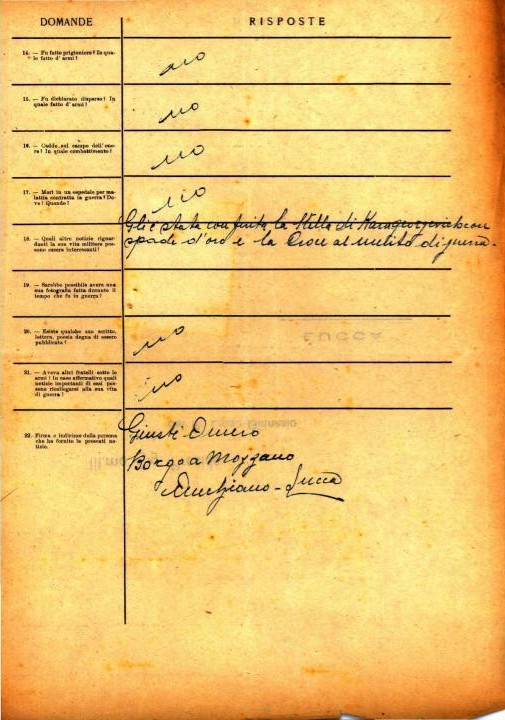 DOMANDE
RISPOSTE
14. — Fu fatto prigioniero? In qua-
le fatto d'armi?
no
15. — Fu dichiarato disperso? In
quale fatto d'armi?
no
16. — Cadde sul campo dell'ono-
re? In quale combattimento?
no
17. — Morì in un ospedale per ma-
lattia contratta in guerra? Do-
ve? Quando?
no
18. — Quali altre notizie riguar-
danti la sua vita militare pos-
sono essere interessanti?
Gli è stata conferita la Stella di Karageorgevich con
spade d'oro e la Croce al merito di guerra.
19. — Sarebbe possibile avere una
sua fotografia fatta durante il
tempo che fu in guerra?
20. — Esiste qualche suo scritto,
lettera, poesia degna di essere
pubblicata?
no
21. — Aveva altri fratelli sotto le
armi? In caso affermativo quali
notizie importanti di essi pos-
sono ricollegarsi alla sua vita
di guerra?
no
22. Firma e indirizzo della persona
che ha fornito le presenti no-
tizie.
Giusti
Borgo a Mozzano
Lucca
LUCCA